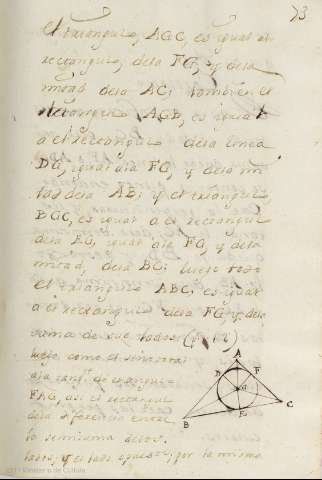 73
el triangulo, AGC, es igual al
rectangulo, dela FG, y dela
mitad dela AC; tambien el
rectangulo AGB, es igual
a el rectangulo dela linea
DG, igual ala FG, y dela mi
tad dela AB; y el triangulo,
BGC, es igual a el rectangulo
dela EG, igual ala FG, y dela
mitad, dela BC; luego todo
el triangulo ABC; es igual
a el rectangulo dela FG, y dela
suma de sus lados
luego como el seno total
ala tang.te de el angulo
FAG, asi el rectangulo
dela diferencia entre
la semisuma delos
lados, y el lado opuesto; por la misma
A
D F
G
B E C